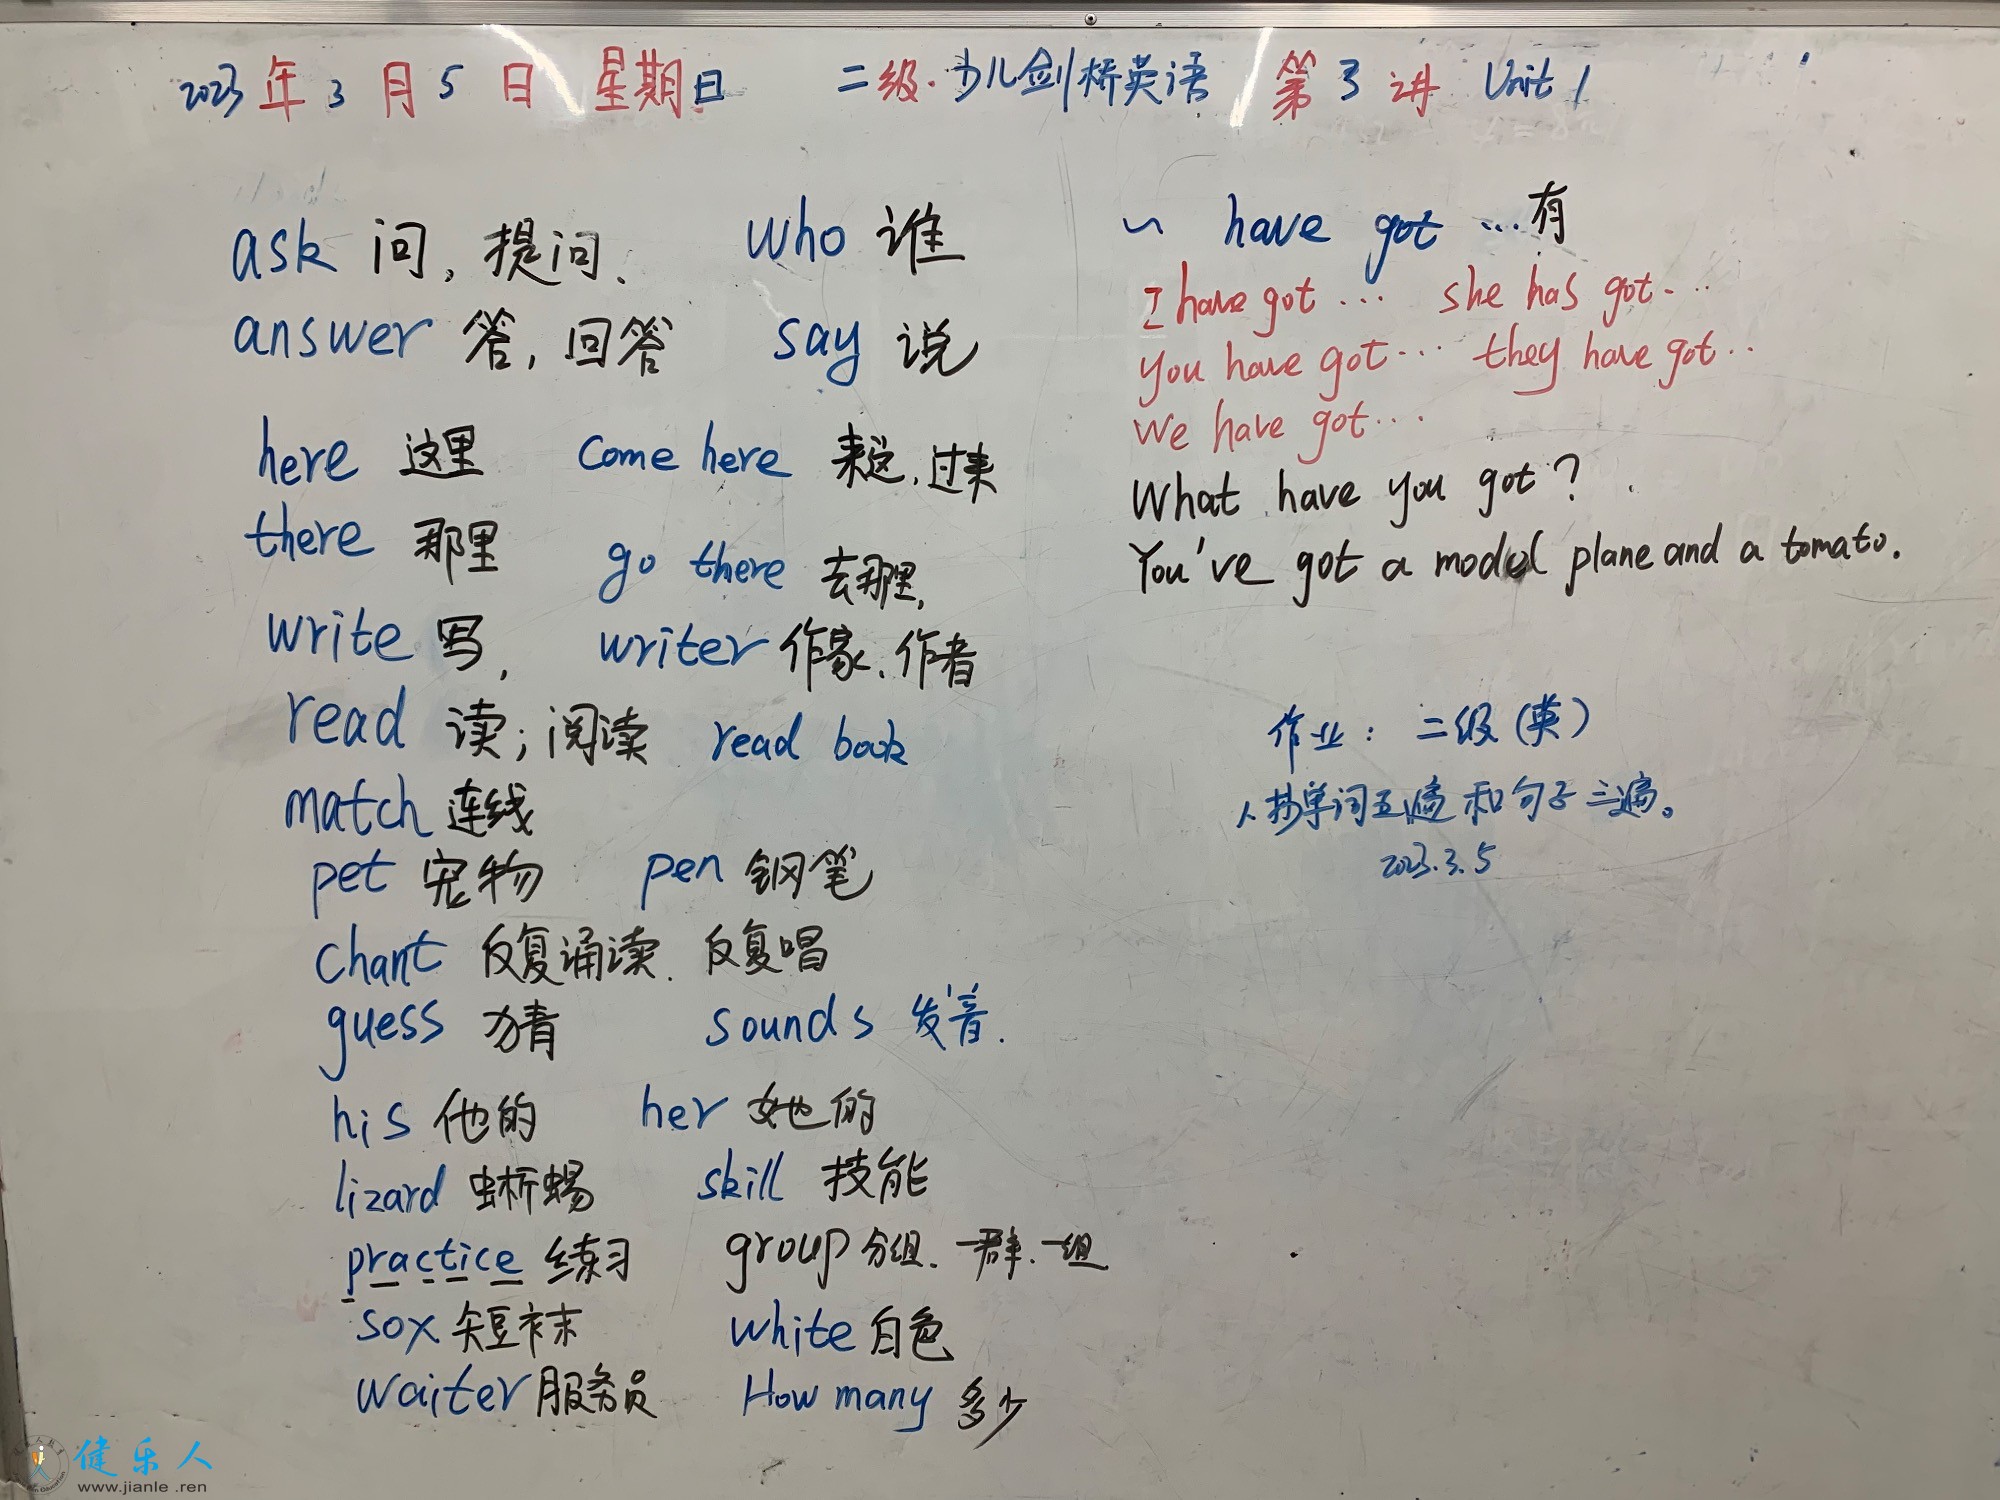 2023年3月5日 星期日 二级·少儿剑桥英语 第3讲 Unit 1
ask 问,提问、 who 谁
answer 答,回答 say 说
here 这里 come here 来这,过来
there 那里 go there 去那里,
write 写, writer 作家、作者
read 读;阅读 read book
match 连线
pet 宠物 pen 钢笔
chant 反复诵读、反复唱
guess 猜 sounds 发音.
his 他的 her 她的
lizard 蜥蜴 skill 技能
practice 练习 group 分组、一群、一组
sox 短袜 white 白色
waiter 服务员 How many 多少
一 have got …有
I have got … she has got …
you have got … they have got ..
We have got …
What have you got ?
You've got a model plane and a tomato.
作业: 二级(英)
1、抄单词五遍和句子三遍。
2023.3.5
健乐人
www.jianle.ren